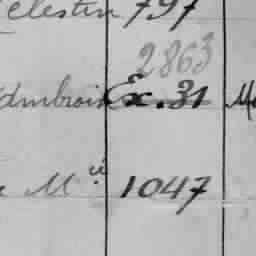 Célestin 797
2863
Ambroise Ex. 31
Mie 1047